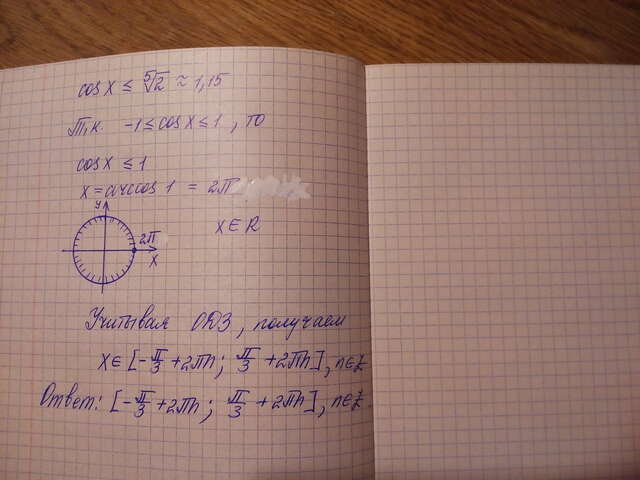 cos x ≤ ⁵√2 ≈ 1,15
Т.к. -1 ≤ cos x ≤ 1, то
cos x ≤ 1
x = arccos 1 = 2π
y
2π
x
x ∈ R
Учитывая ОДЗ, получаем
x ∈ [-π/3 + 2πn; π/3 + 2πn], n ∈ Z
Ответ: [-π/3 + 2πn; π/3 + 2πn], n ∈ Z